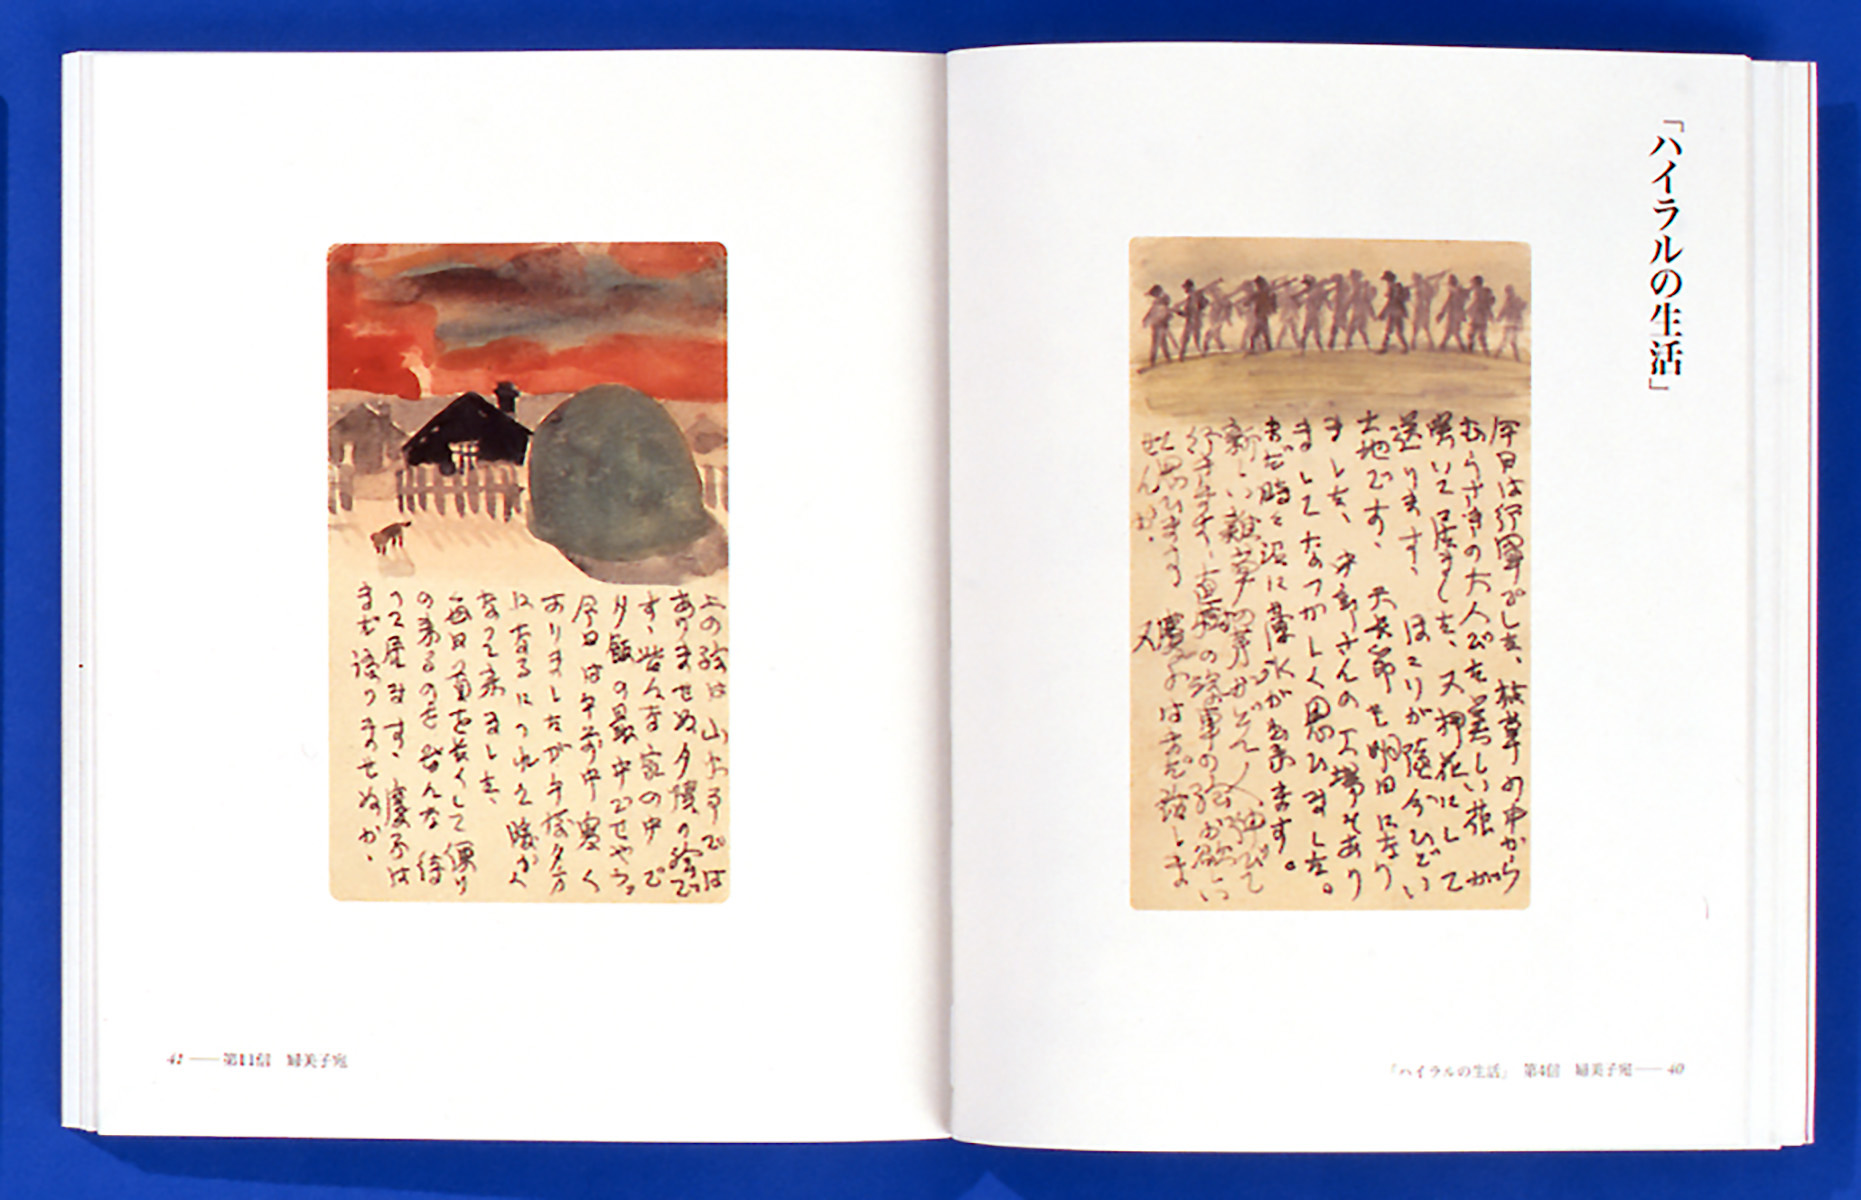 「ハイラルの生活」
今日は行軍でした、枯草の中から
むらさきの大人びた美しい花が
咲いて居ました、又押花にして
送ります、ほこりが随分ひどい
大地です、天長節も明日になり
ました、さんの工場もあり
ましてなつかしく思ひました。
まだ時々沼に薄氷が出来ます。
新しい雑草の芽がぐんぐん伸びて
行きます、の絵が欲しい
と思ひます 慶子はまだ話しま
せんか。 又
「ハイラルの生活」 第4信 婦美子宛――40
この絵は山火事では
ありませぬ夕陽の絵で
す、皆んな家の中で
夕飯の最中でせやう。
今日は午前中寒く
ありましたが午後夕方
になるにつれて暖かく
なって来ました、
毎日首を長くして便り
の来るのを皆んな待
って居ます、慶子は
まだ語りませぬか、
41――第11信 婦美子宛